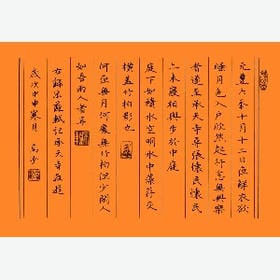 元豐六年十月十二日夜解衣欲
睡月色入戶欣然起行念無與樂
者遂至承天寺尋張懷民懷民
亦未寢相與步於中庭
庭下如積水空明水中藻荇交
橫蓋竹柏影也
何夜無月何處無竹柏但少閑人
如吾兩人者耳
右錄宋蘇軾記承天寺夜遊
歲次甲申寒月